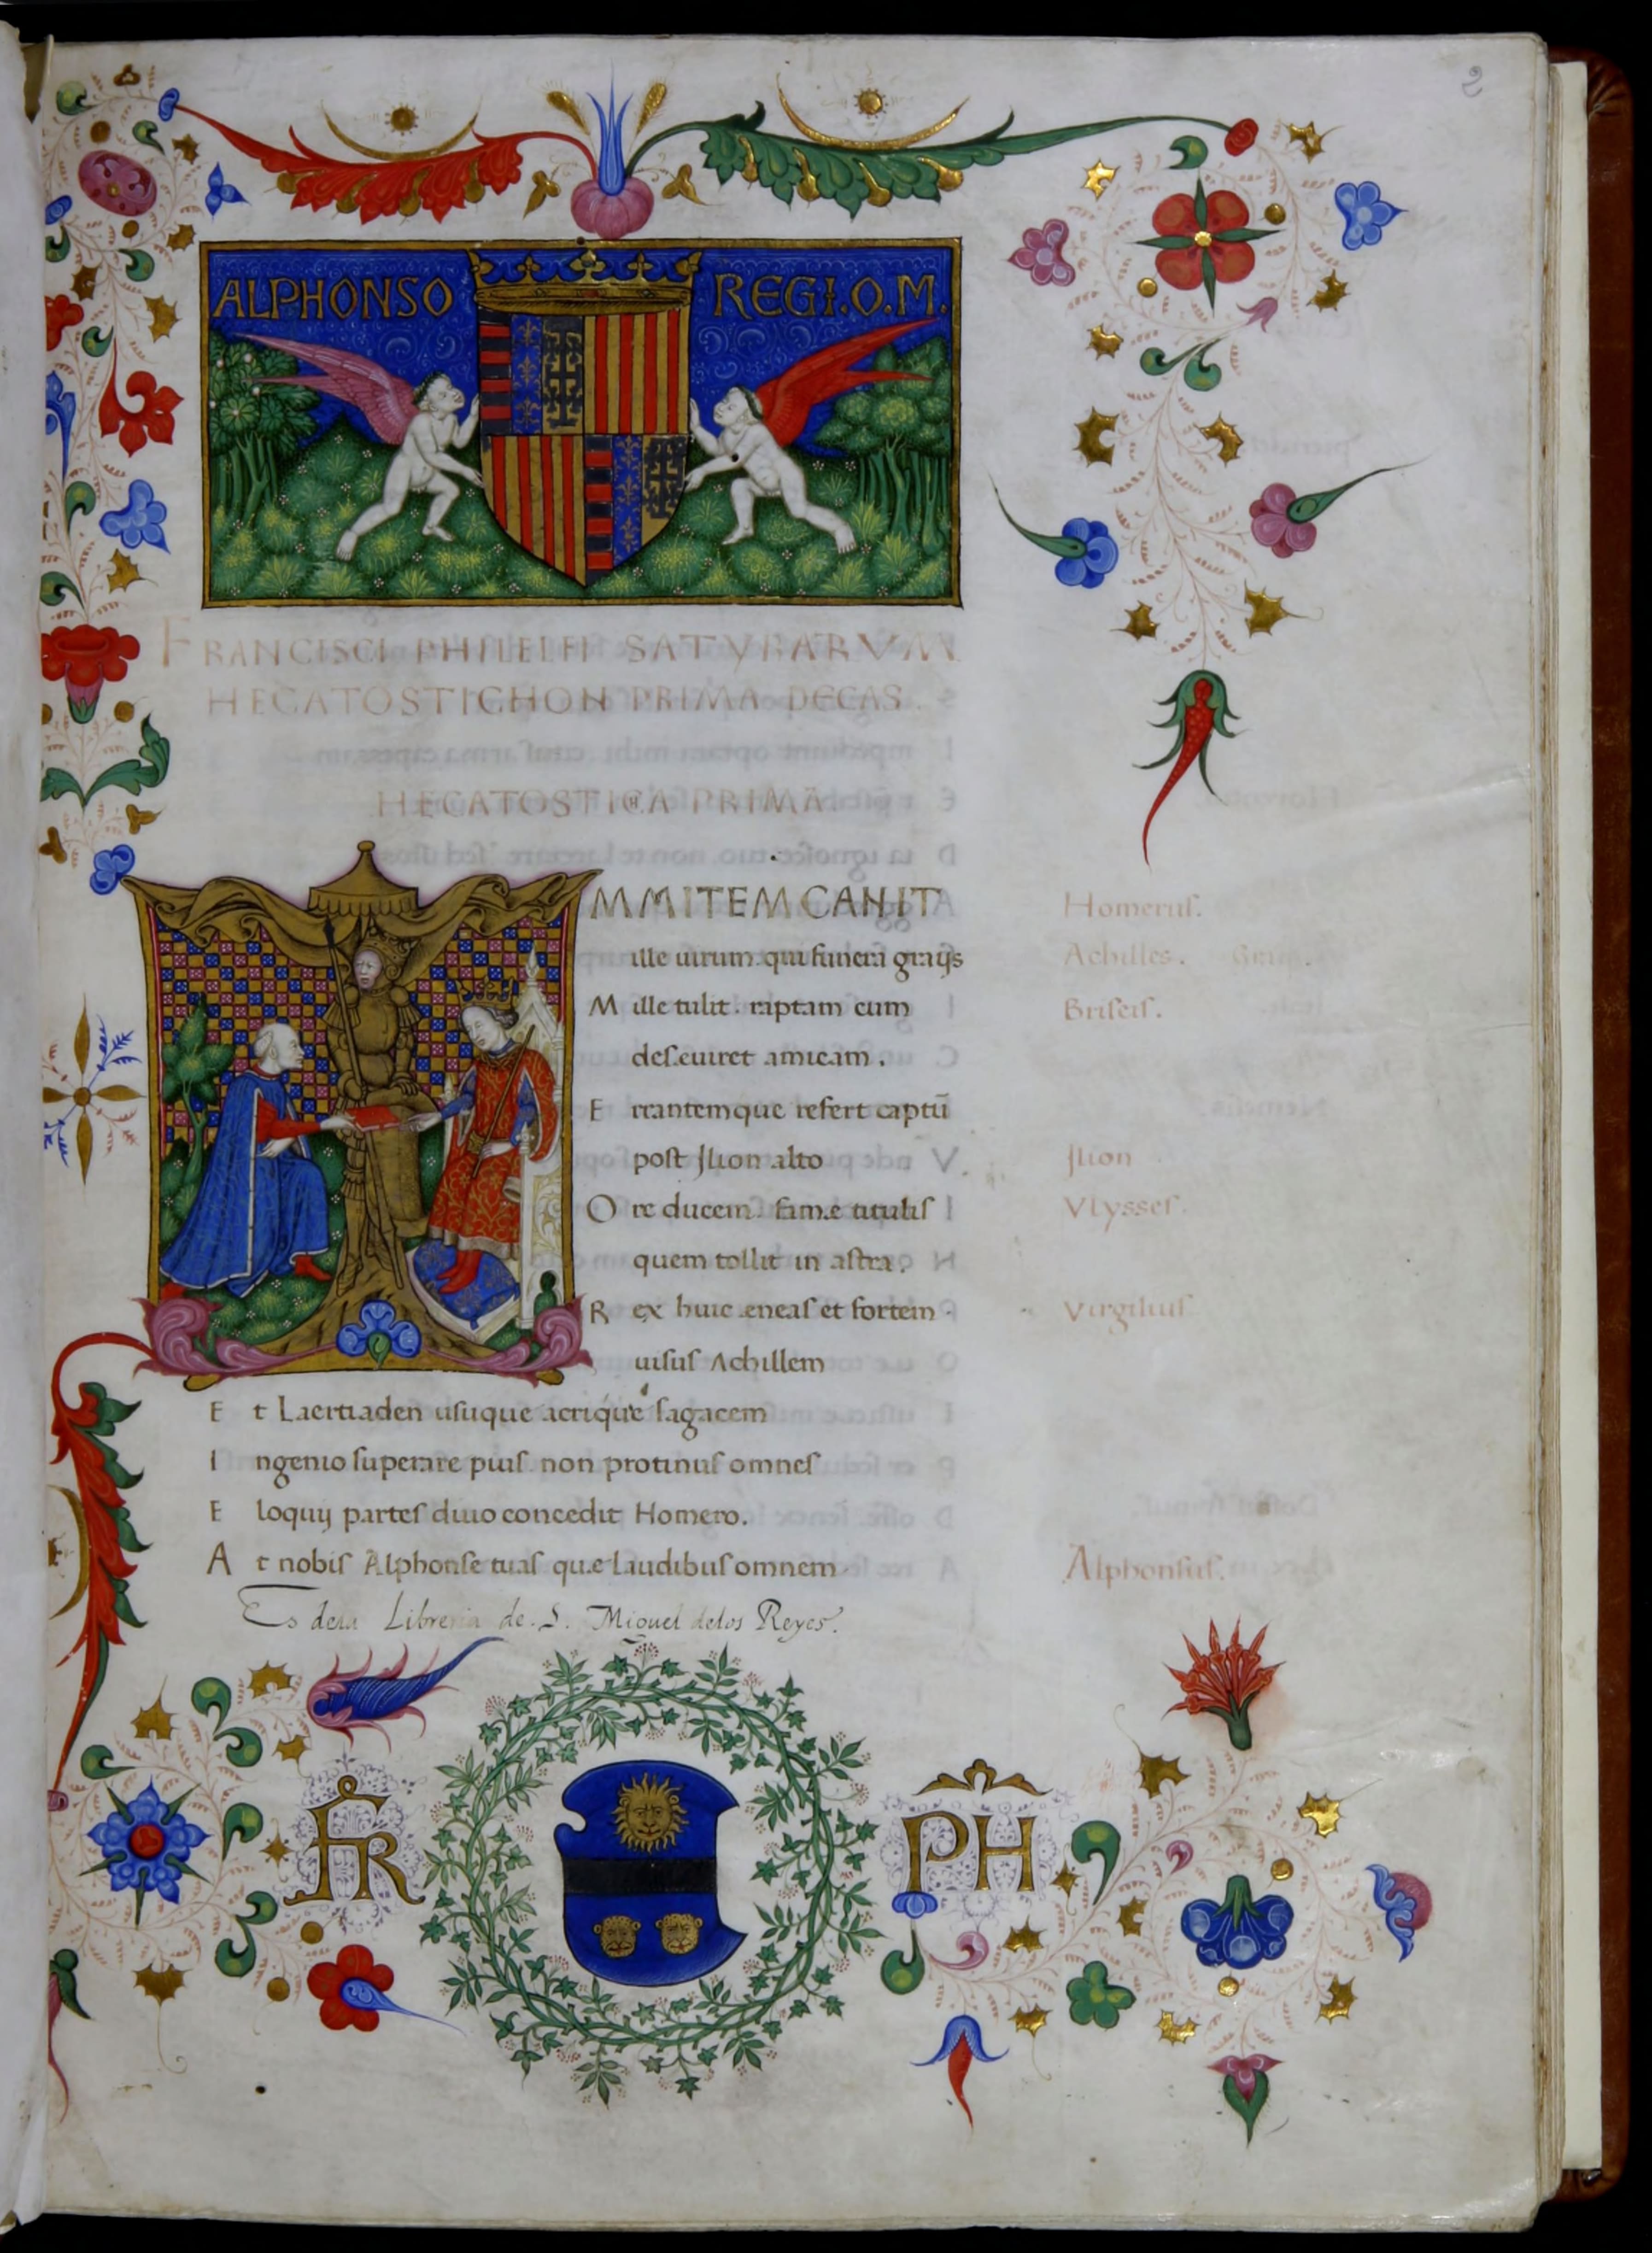 2
ALPHONSO REGI.O.M.
FRANCISCI PHILELFI SATYRARVM
HECATOSTICHON PRIMA DECAS.
HECATOSTICHA PRIMA
MMITEM CANIT Homeruſ.
ille uirum. qui funera graijs Achilles.
M ille tulit. raptam cum Briſeiſ.
deſeuiret amicam.
E rrantemque refert captū
poſt Jlion alto Jlion
O re ducem. fame tituliſ Vlyſſeſ.
quem tollit in aſtra.
R ex huic æneaſ et fortem. Virgiliuſ
uiſuſ Achillem
E t Laertiaden uſuque acrique ſagacem
I ngenio ſuperare piuſ. non protinuſ omneſ
E loquij parteſ diuo concedit Homero.
A t nobiſ Alphonſe tuaſ quę laudibuſ omnem Alphonſuſ.
Es dela Libreria de. S. Miguel delos Reyes.
FR PH